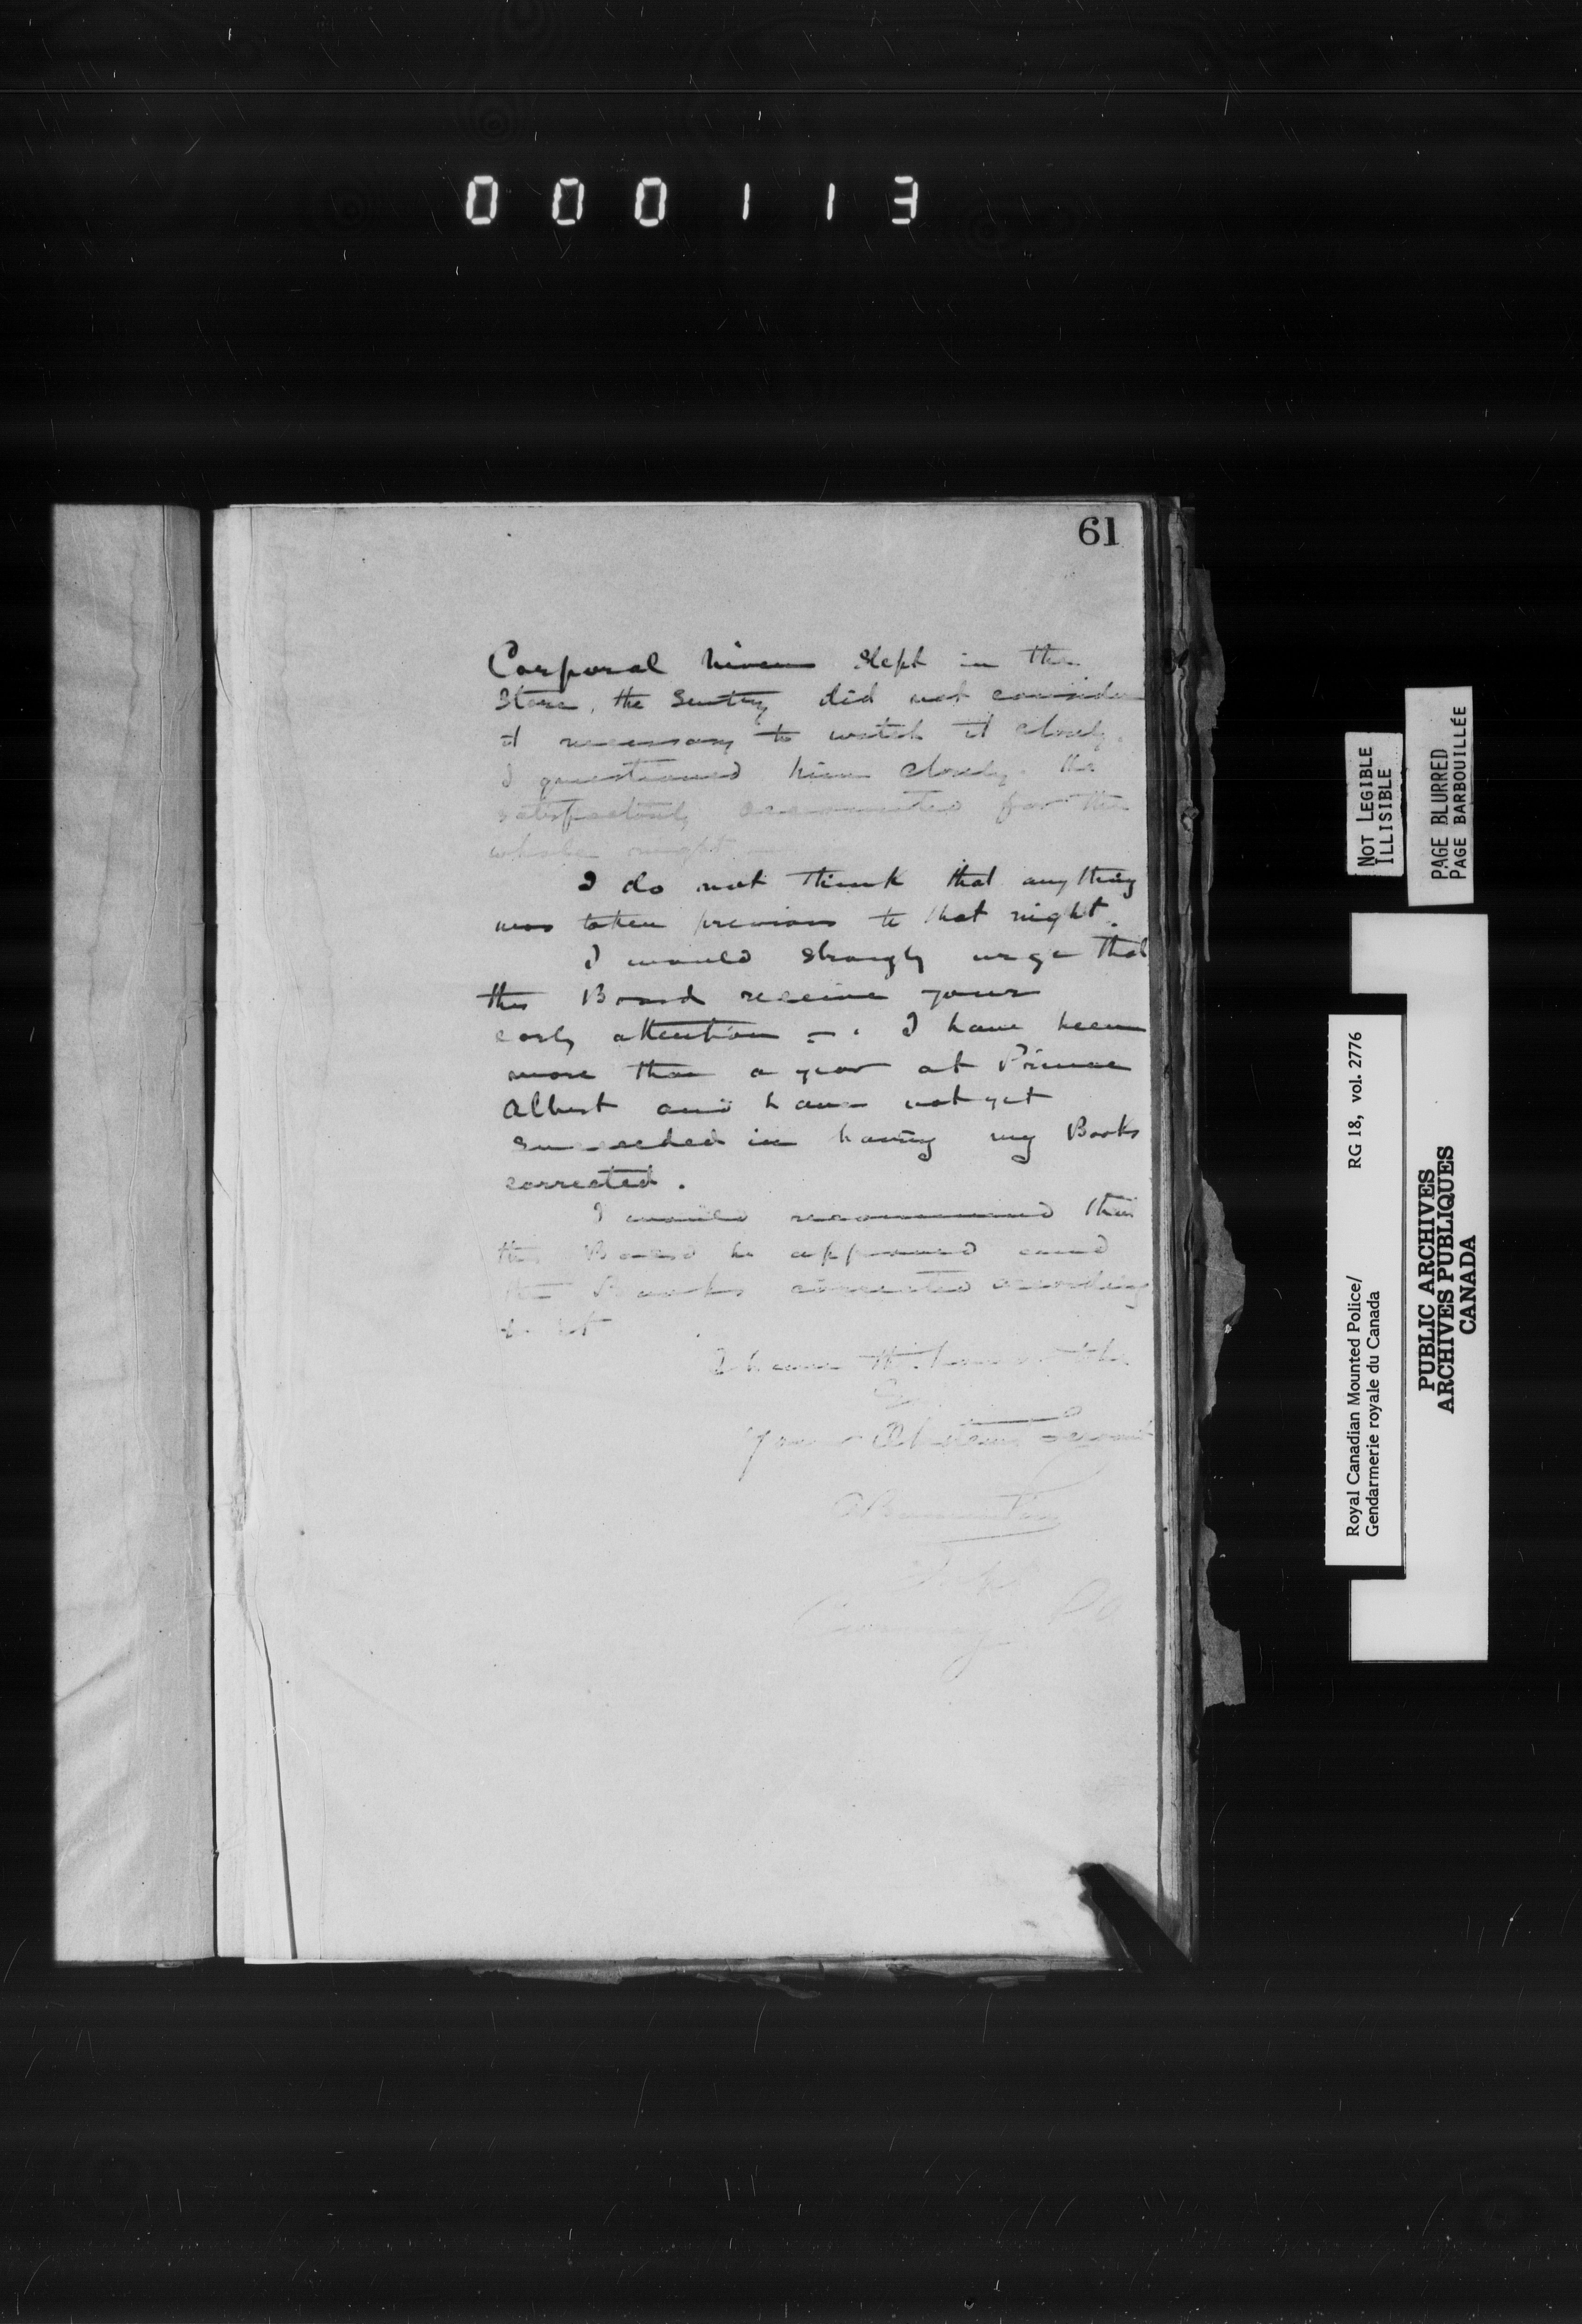 000113
61
Corporal Niven slept in the
Store, the Sentry did not consider
it necessary to watch it closely.
I questioned him closely. He
satisfactorily accounted for the
whole night
I do not think that anything
was taken previous to that night.
I would strongly urge that
this Board receive your
early attention - . I have been
more than a year at Prince
Albert and have not yet
succeeded in having my Books
corrected.
I would recommend that
the Board be approved and
the Books corrected according
to it
I have the honor to be
Your Obedient Servant
NOT LEGIBLE
ILLISIBLE
PAGE BLURRED
PAGE BARBOUILLÉE
Royal Canadian Mounted Police/ RG 18, vol. 2776
Gendarmerie royale du Canada
PUBLIC ARCHIVES
ARCHIVES PUBLIQUES
CANADA